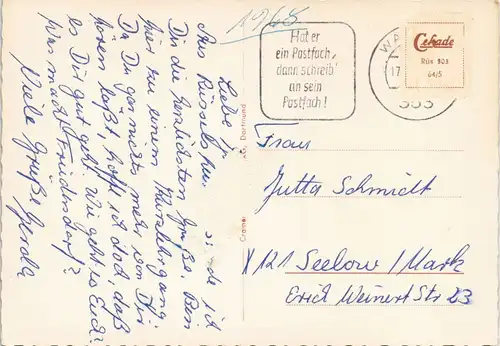 1968
Liebe J
Aus Rüsselshei sende ich
Dir die herzlichsten Grüße. Bin
hier zu einem Kurzlehrgang.
Da Du gar nichts mehr von Dir
hören läßt, hoffe ich doch, daß
es Dir gut geht. Wie geht es Euch?
Was macht Friedersdorf?
Viele Grüße Gerda
Cramer
Dortmund
Hat er
ein Postfach,
dann schreib'
an sein
Postfach!
WA
17
Cekade
Rüs 303
64/5
Frau
Jutta Schmidt
X 121 Seelow/Mark
Erich Weinert Str 23